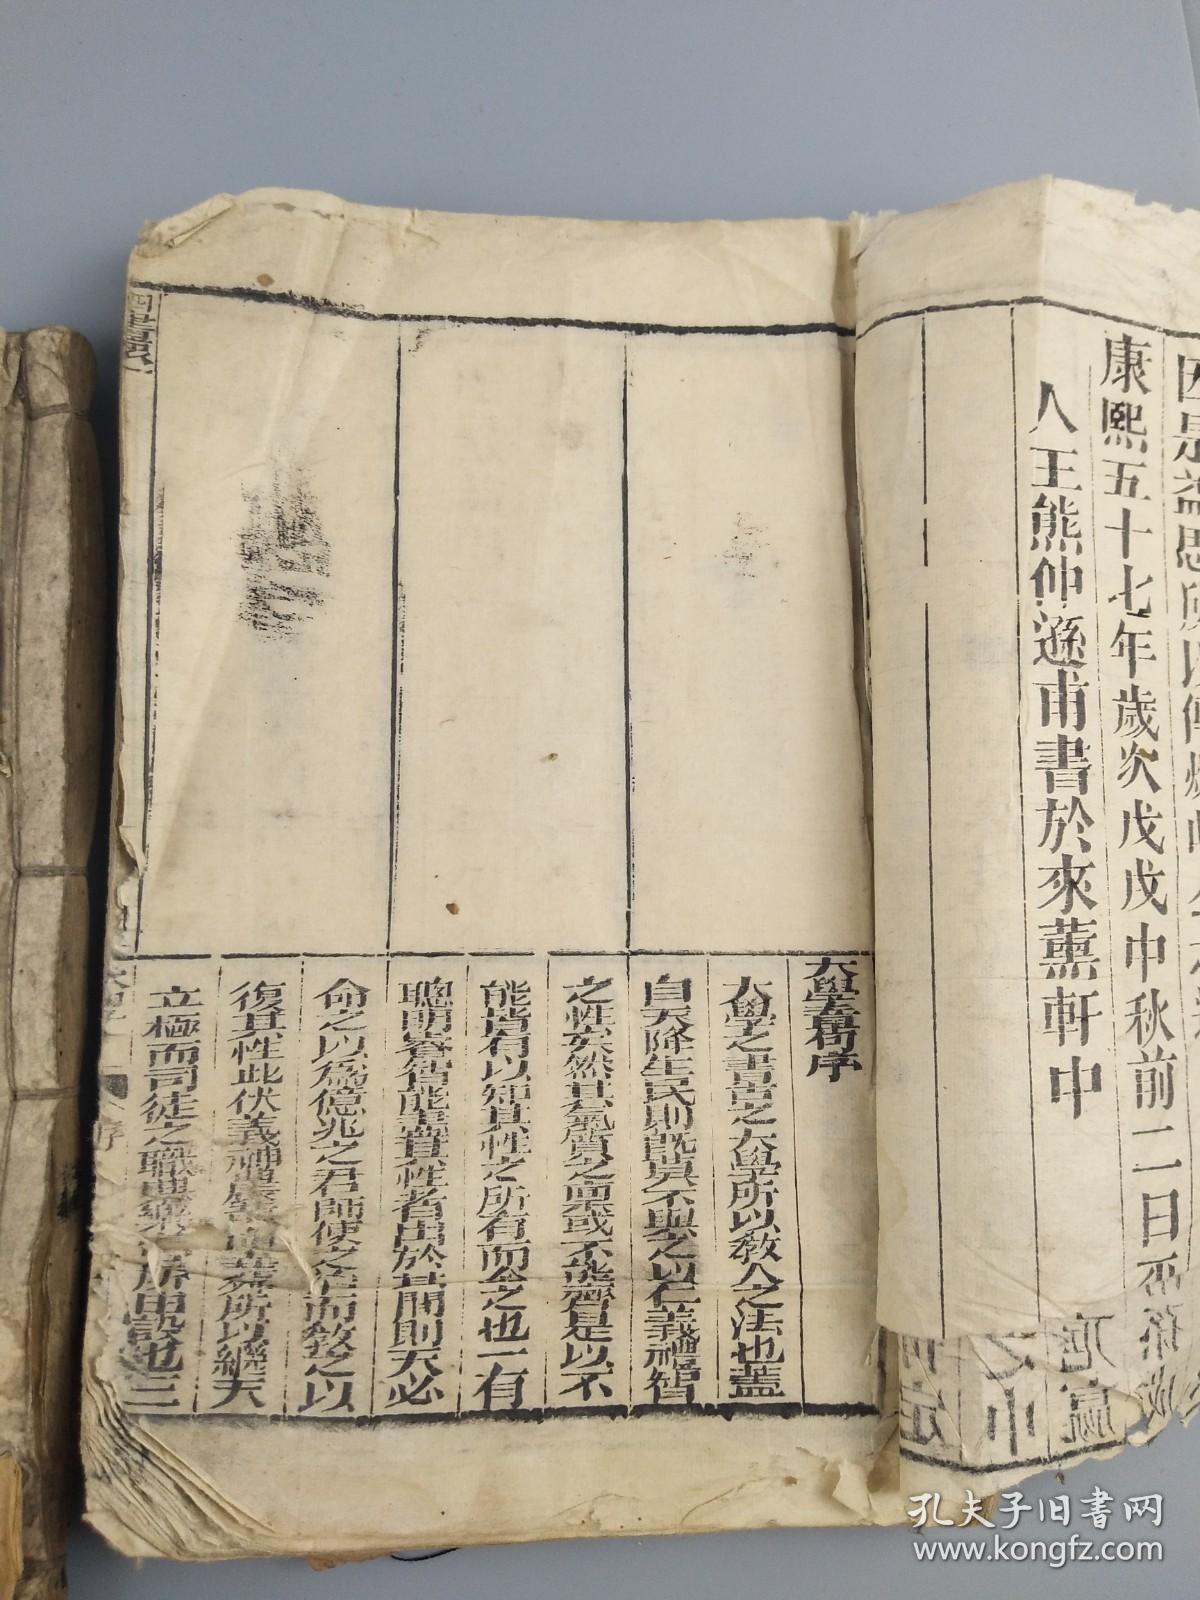 康熙五十七年歲次戊戌中秋前二日
人王熊仲遜甫書於來薰軒中
大學章句序
大學之書古之大學所以教人之法也蓋
自天降生民則既莫不與之以仁義禮智
之性矣然其氣質之稟或不能齊是以不
能皆有以知其性之所有而全之也一有
聰明睿智能盡其性者出於其間則天必
命之以為億兆之君師使之治而教之以
復其性此伏羲神農黃帝堯舜所以繼天
立極而司徒之職典樂之官所由設也三
序
孔夫子旧书网
www.kongfz.com